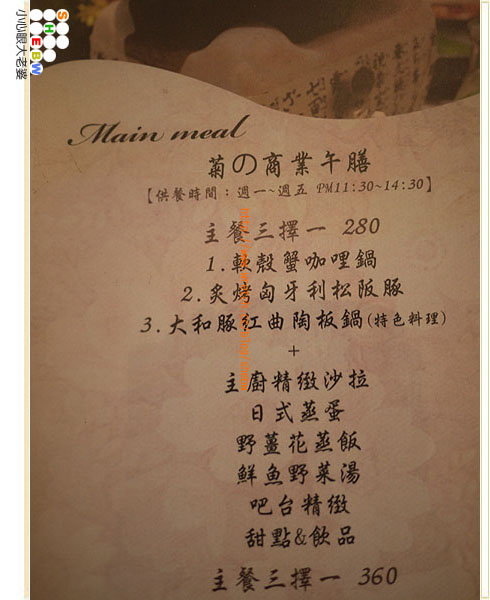 SHEBW
小心眼大老婆
Main meal
菊の商業午膳
【供餐時間：週一~週五 PM11:30~14:30】
主餐三擇一 280
1.軟殼蟹咖哩鍋
2.炙烤匈牙利松阪豚
3.大和豚紅曲陶板鍋(特色料理)
+
主廚精緻沙拉
日式蒸蛋
野薑花蒸飯
鮮魚野菜湯
吧台精緻
甜點&飲品
主餐三擇一 360